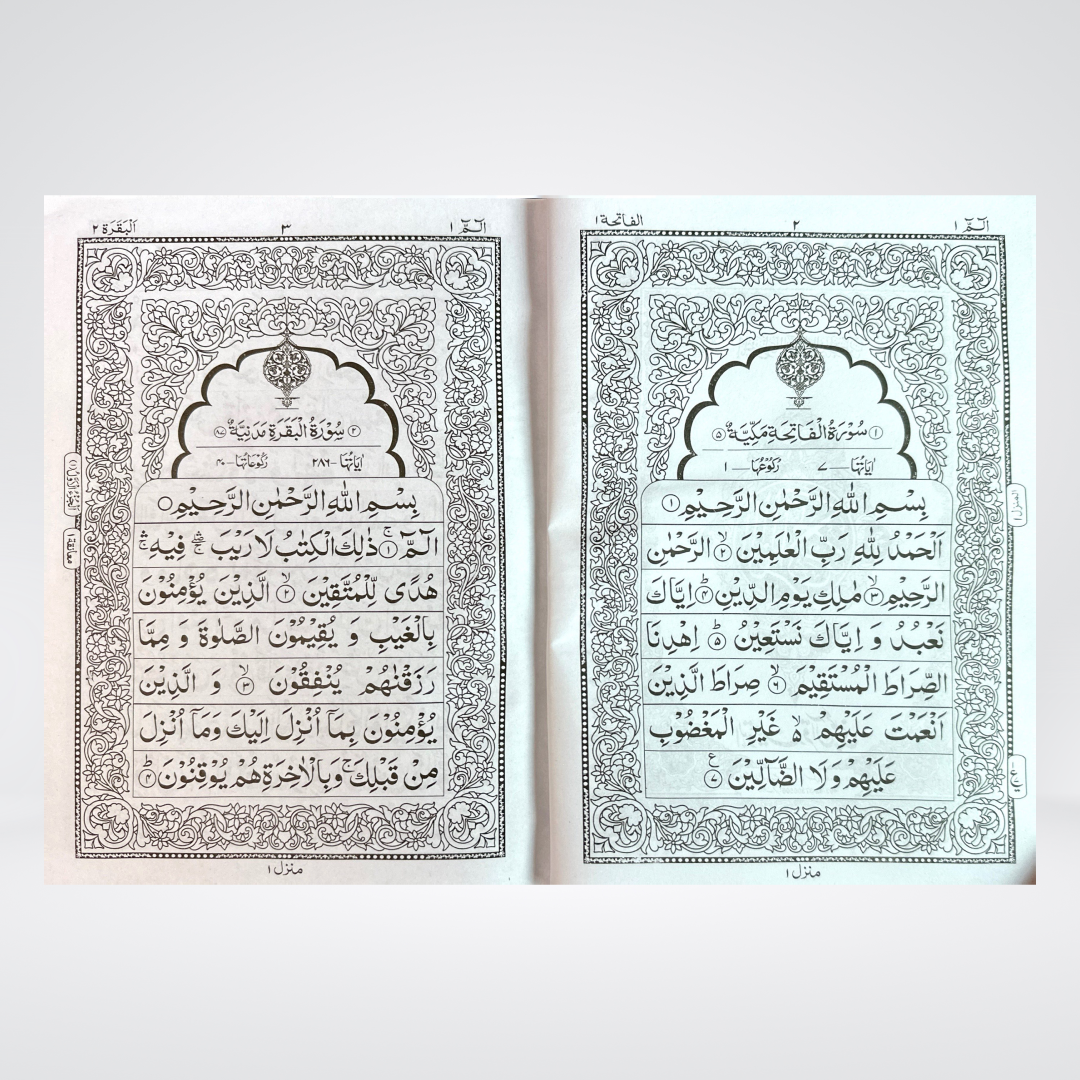 الٓـمّٓ ١ ٢ الفاتحة ١
١ سُوْرَةُ الْفَاتِحَةِ مَكِّيَّةٌ ٥
اٰيَاتُهَا — ٧ رُكُوْعُهَا — ١
بِسْمِ اللّٰهِ الرَّحْمٰنِ الرَّحِيْمِ ١
اَلْحَمْدُ لِلّٰهِ رَبِّ الْعٰلَمِيْنَ ۙ ٢ الرَّحْمٰنِ
الرَّحِيْمِ ۙ ٣ مٰلِكِ يَوْمِ الدِّيْنِ ؕ ٤ اِيَّاكَ
نَعْبُدُ وَ اِيَّاكَ نَسْتَعِيْنُ ؕ ٥ اِهْدِنَا
الصِّرَاطَ الْمُسْتَقِيْمَ ۙ ٦ صِرَاطَ الَّذِيْنَ
اَنْعَمْتَ عَلَيْهِمْ ۙ۬ غَيْرِ الْمَغْضُوْبِ
عَلَيْهِمْ وَ لَا الضَّآلِّيْنَ ٧ ع
المنزل ١
منزل ١
الٓـمّٓ ١ ٣ اَلْبَقَرَة ٢
٢ سُوْرَةُ الْبَقَرَةِ مَدَنِيَّةٌ ٨٧
اٰيَاتُهَا — ٢٨٦ رُكُوْعَاتُهَا — ٤٠
بِسْمِ اللّٰهِ الرَّحْمٰنِ الرَّحِيْمِ
الٓـمّٓ ۚ ١ ذٰلِكَ الْكِتٰبُ لَا رَيْبَ ۛۖۚ فِيْهِ ۛۚ
هُدًى لِّلْمُتَّقِيْنَ ۙ ٢ الَّذِيْنَ يُؤْمِنُوْنَ
بِالْغَيْبِ وَ يُقِيْمُوْنَ الصَّلٰوةَ وَ مِمَّا
رَزَقْنٰهُمْ يُنْفِقُوْنَ ۙ ٣ وَ الَّذِيْنَ
يُؤْمِنُوْنَ بِمَاۤ اُنْزِلَ اِلَيْكَ وَمَاۤ اُنْزِلَ
مِنْ قَبْلِكَ ۚ وَبِالْاٰخِرَةِ هُمْ يُوْقِنُوْنَ ؕ ٤
معانقة ١
منزل ١